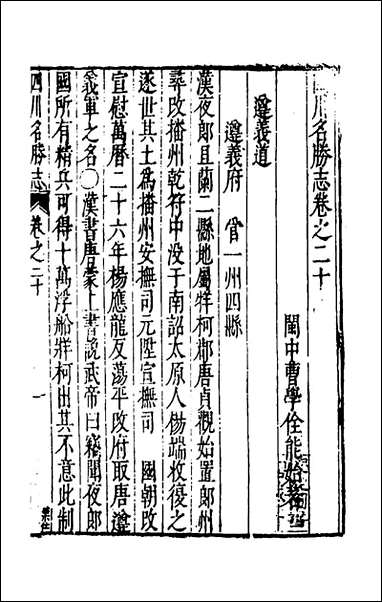 四川名勝志卷之二十
閩中曹學佺能始著
遵義道
遵義府 管一州四縣
漢夜郎且蘭二縣地屬牂柯郡唐貞觀始置郎州
尋改播州乾符中没于南詔太原人楊端收復之
遂世其土爲播州安撫司元陞宣撫司 國朝改
宣慰萬曆二十六年楊應龍反蕩平改府取唐遵
義軍之名○漢書唐蒙上書說武帝曰竊聞夜郎
國所有精兵可得十萬浮船牂柯出其不意此制
四川名勝志 卷之二十 一